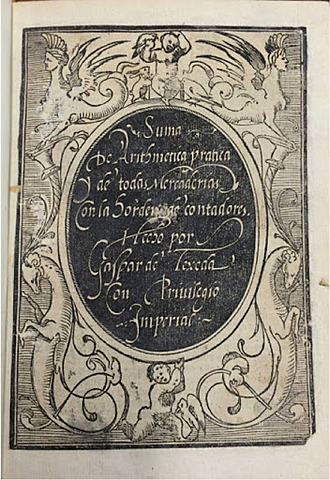 Suma
De Arithmetica pratica
y de todas Mercaderias
Con la horden de contadores
Hecho por
Gaspar de Texeda
Con Privilegio
Imperial